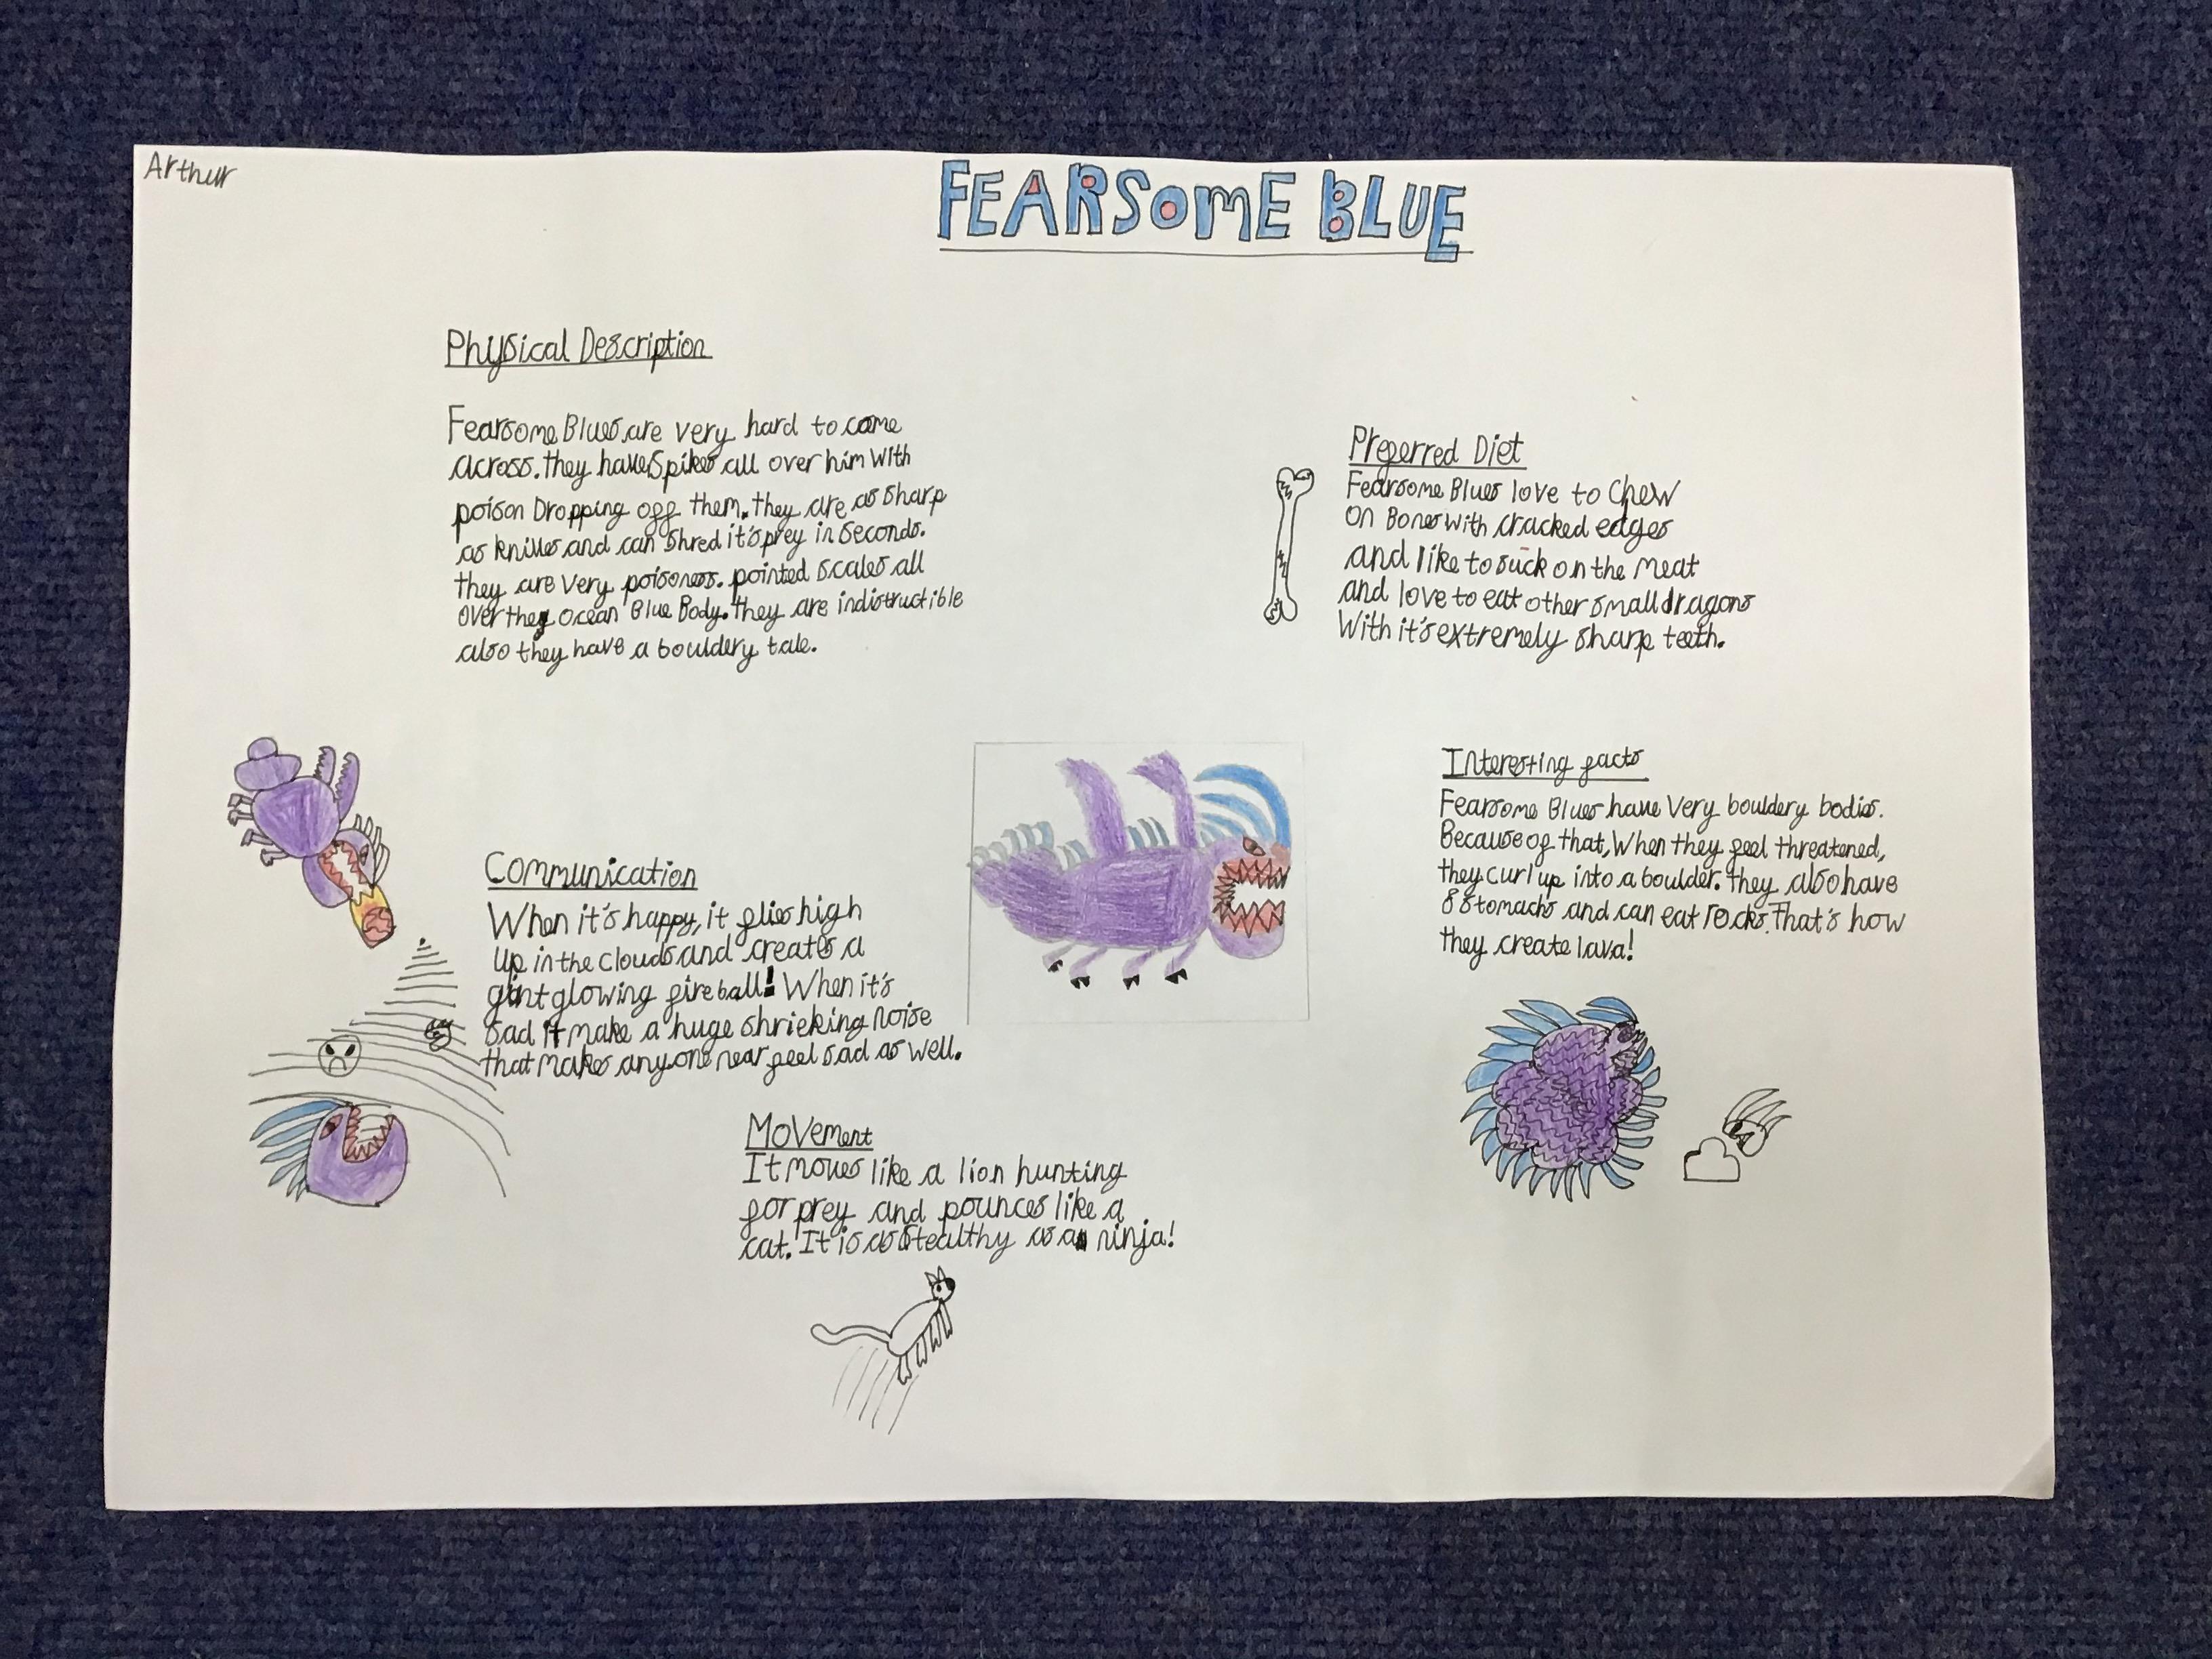 Arthur
FEARSOME BLUE
Physical Description
Fearsome Blues are very hard to come
across. they have Spikes all over him with
poison Dropping off them. they are as sharp
as knives and can shred it's prey in seconds.
they are very poisoness. pointed scales all
over they ocean Blue Body. they are indistructible
also they have a bouldery tale.
Preferred Diet
Fearsome Blues love to chew
on Bones with cracked edges
and like to suck on the meat
and love to eat other small dragons
With it's extremely sharp teeth.
Communication
When it's happy, it flies high
up in the clouds and creates a
giant glowing fireball! When it's
sad it make a huge shrieking noise
that makes anyone near feel sad as well.
Interesting facts
Fearsome Blues have very bouldery bodies.
Because of that, When they feel threatened,
they curl up into a boulder. they also have
8 Stomachs and can eat rocks. That's how
they create lava!
Movement
It moves like a lion hunting
for prey and pounces like a
cat. It is as stealthy as a ninja!